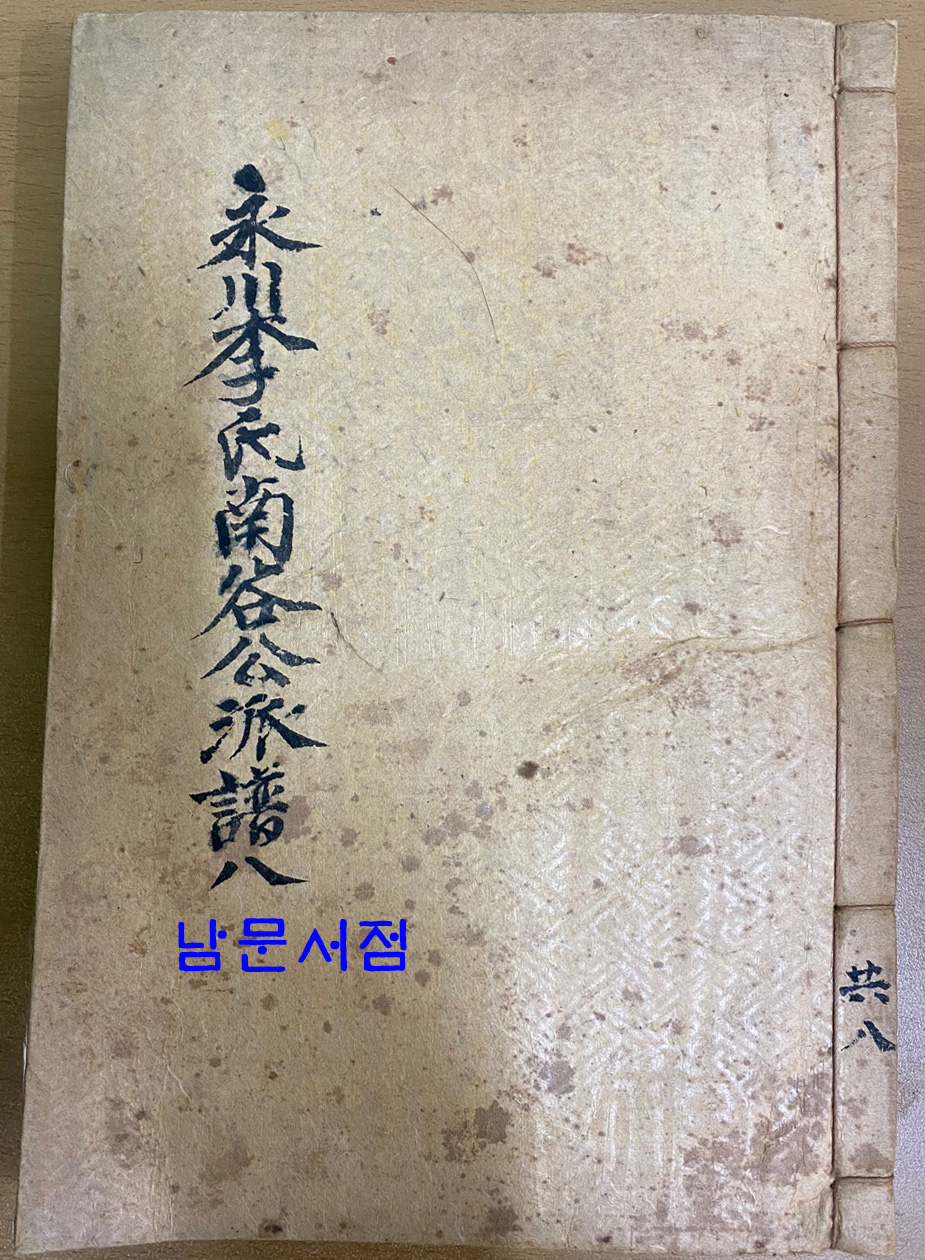 永川李氏南谷公派譜八
남문서점
共八